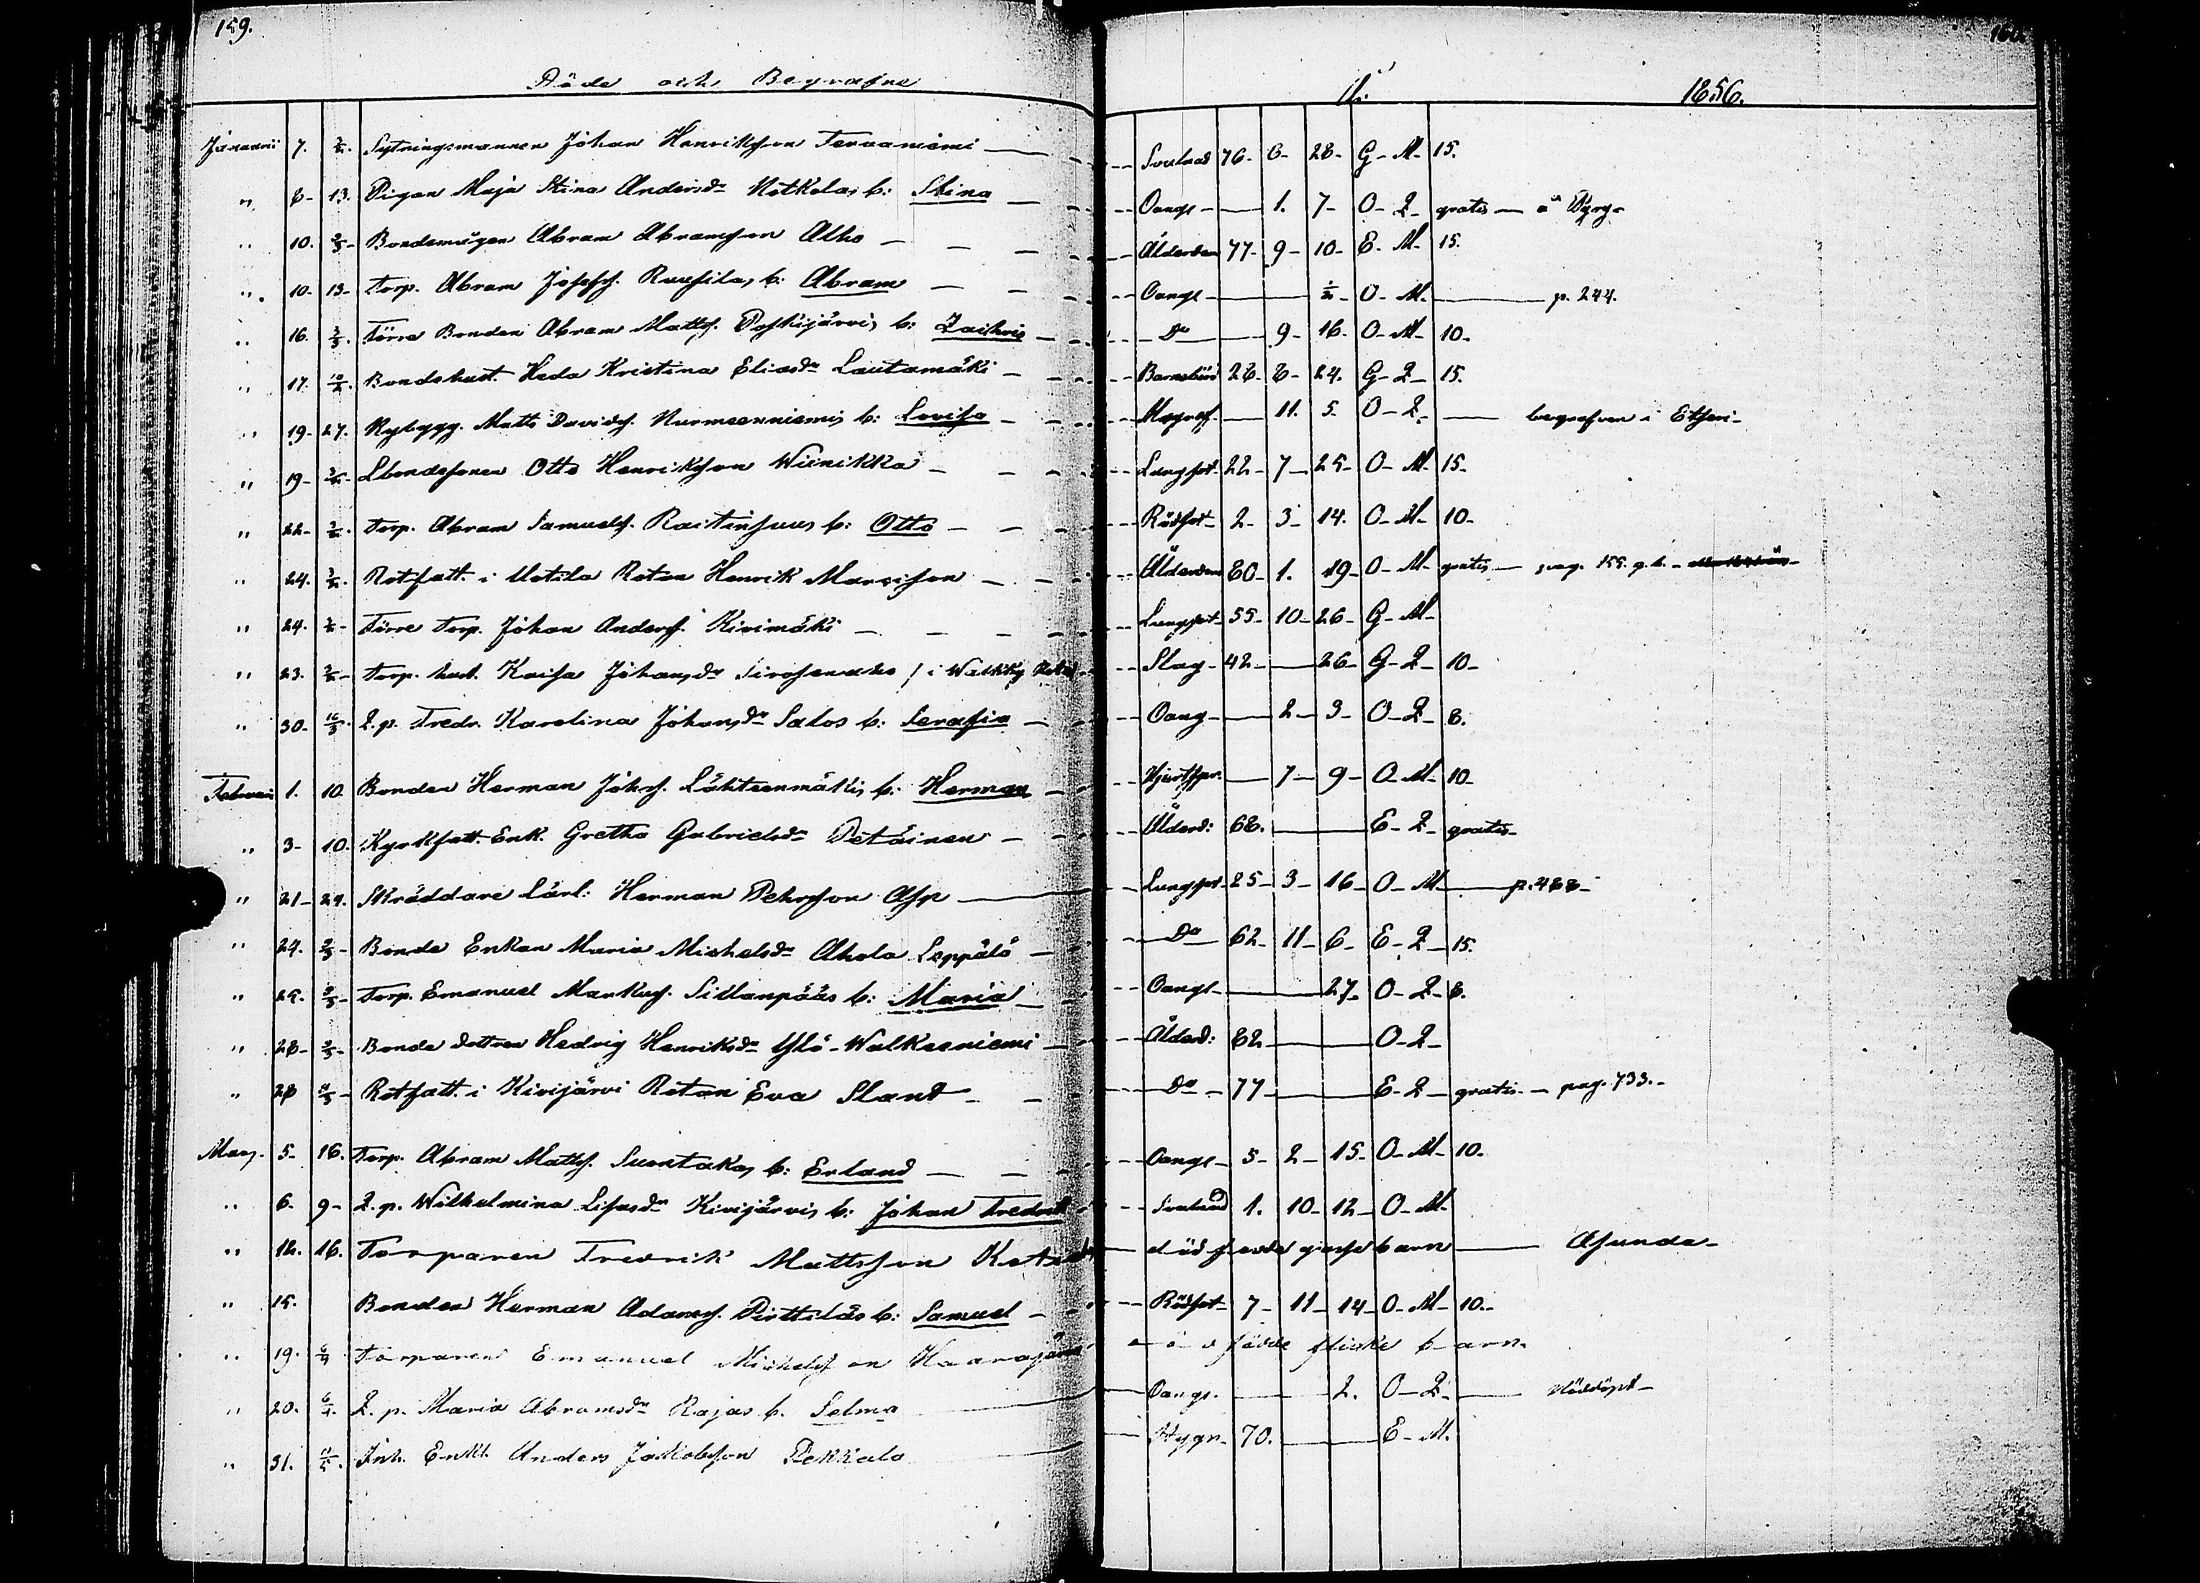 159.
160.
Döde och Begrafne
År
1856.
Januarii 7. 3/2. Sytningsmannen Johan Henriksson Tervaniemi — Svulnad 76- 6- 28- G- M- 15.
" 8- 13. Pigan Maja Stina Andersdr Notkolas b: Stina — Oangl — 1. 7- O- Q- gratis — a
" 10. 2/3- Bondemågen Abram Abramsson Alho — Ålderdom 77- 9- 10- E- M- 15.
" 10- 13- Torp. Abram Josefss. Ruusilas b: Abram — Oangl — 1/2- O- M- — p. 244.
" 16. 2/3. Förre Bonden Abram Matts. Poskijärvis b: — Do — 9- 16. O- M- 10.
" 17. 10/2. Bondehust. Heda Kristina Eliasdr Lautamäki — Barnsbörd 28- 8- 24. G- Q- 15.
" 19- 27. Nybygg. Matts Davids. Nurmeenniemis b: Lovisa — 11. 5. O- Q- — begrafven i Etseri-
" 19- 3/2- Lbondesonen Otto Henriksson Wiinikka — Lungsot- 22- 7- 25- O- M- 15-
" 22- 3/2. Torp. Abram Samuels. Raitinsuus b: Otto — Rödsot- 2- 3- 14. O- M- 10-
" 24. 3/2. Rotfatt. i Uotila Rotan Henrik Marcisson — Ålderdom 80- 1. 19- O- M- gratis — pag. 155. g.b. -
" 24. 3/2- Förre Torp. Johan Anders. Kivimäki — Lungsot- 55- 10- 26- G- M-
" 23. 3/2- Torp. hust. Kaisa Johansdr — Slag- 42- — 26- G- Q- 10-
" 30- 16/3. Q.p. Fredr. Karolina Johansdr Salos b: Serafia — Oang- — 2- 3- O- Q- 8.
Februari 1. 10. Bonden Herman Johs. Lähteenmäkis b: Herman — Hjertspr. — 7- 9- O- M- 10-
" 3- 10. Kyrkfatt. Enk. Gretha Gabrielsdr Petäinen — Ålderd: 68. — E- Q- gratis-
" 21- 24. Skräddare Lärl: Herman Pehrsson Asp — Lungsot- 25- 3- 16- O- M — p. 488-
" 24. 2/3- Bonde Enkan Maria Michelsdr Ahola Leppälä — Do 62- 11- 6- E- Q- 15.
" 25. 9/3- Torp. Emanuel Markus. Sillanpääs b: Maria — Oangl- — 27. O- Q- 8.
" 28- 9/3- Bonde dottren Hedvig Henriksdr Ylö-Walkeaniemi — Ålderd: 82 — O- Q-
" 28 Rotfatt. i Kivijärvi Rotan Eva Slant — Do- 77- — E- Q- gratis. — pag. 733.-
Mars. 5- 16. Torp. Abram Matts. Suontakas b: Erland — Oangl- 5- 2- 15- O- M- 10.
" 6. 9- Q.p. Wilhelmina Lisasdr Kivijärvis b: Johan Fredrik — Svulnad 1. 10- 12- O- M-
" 12. 16. Torparen Fredrik Mattsson — dödfödde gosse barn — Asunda-
" 15. Bonden Herman Adams. Pirttiläs b: Samuel — Rödsot- 7- 11- 14- O- M- 10.-
" 19. 6/4 Torparen Emanuel Michelsson Haarajärvi — dödfödde flicke barn.
" 20. 6/4. Q.p. Maria Abramsdr Rajas b. Selma — Oangl. — 2. O- Q- — Nöddöpt-
" 31. Inh. Enkl. Anders Jakobsson Pekkala — 70. — E- M.